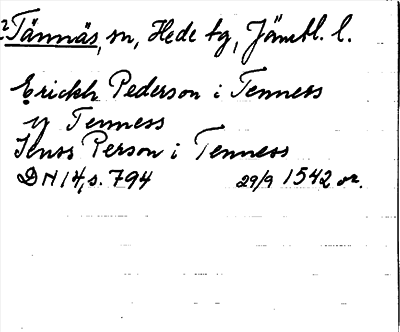 2 Tännäs, sn, Hede tg, Jämtl. l.
Erickh Pederson i Tenness
ij Tenness
Jenss Person i Tenness
DN 14, s. 794 29/9 1542 or.